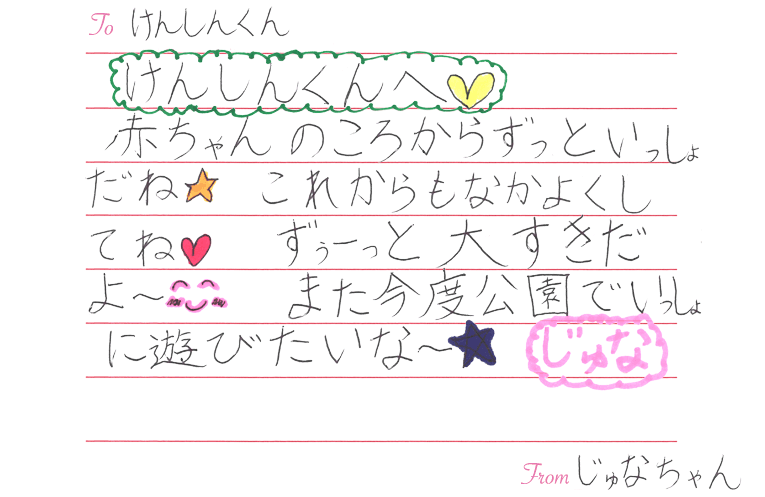 To けんしんくん
けんしんくんへ
赤ちゃんのころからずっといっしょ
だね これからもなかよくし
てね ずぅーっと大すきだ
よ～ また今度公園でいっしょ
に遊びたいな～ じゅな
From じゅなちゃん